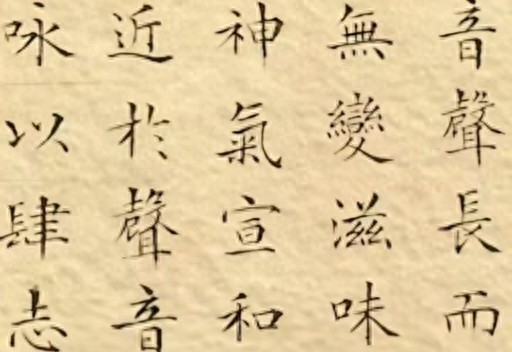 音聲長而
無變滋味
神氣宣和
近於聲音
咏以肆志